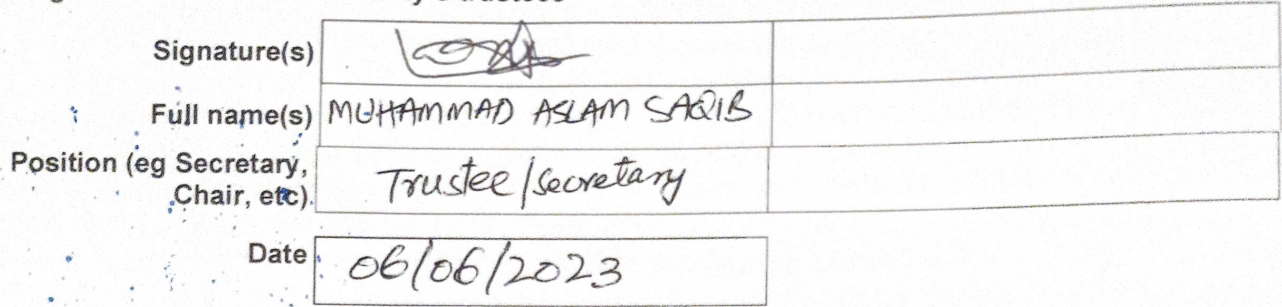 Signature(s)
Full name(s) MUHAMMAD ASLAM SAQIB
Position (eg Secretary, Trustee/Secretary
Chair, etc)
Date 06/06/2023